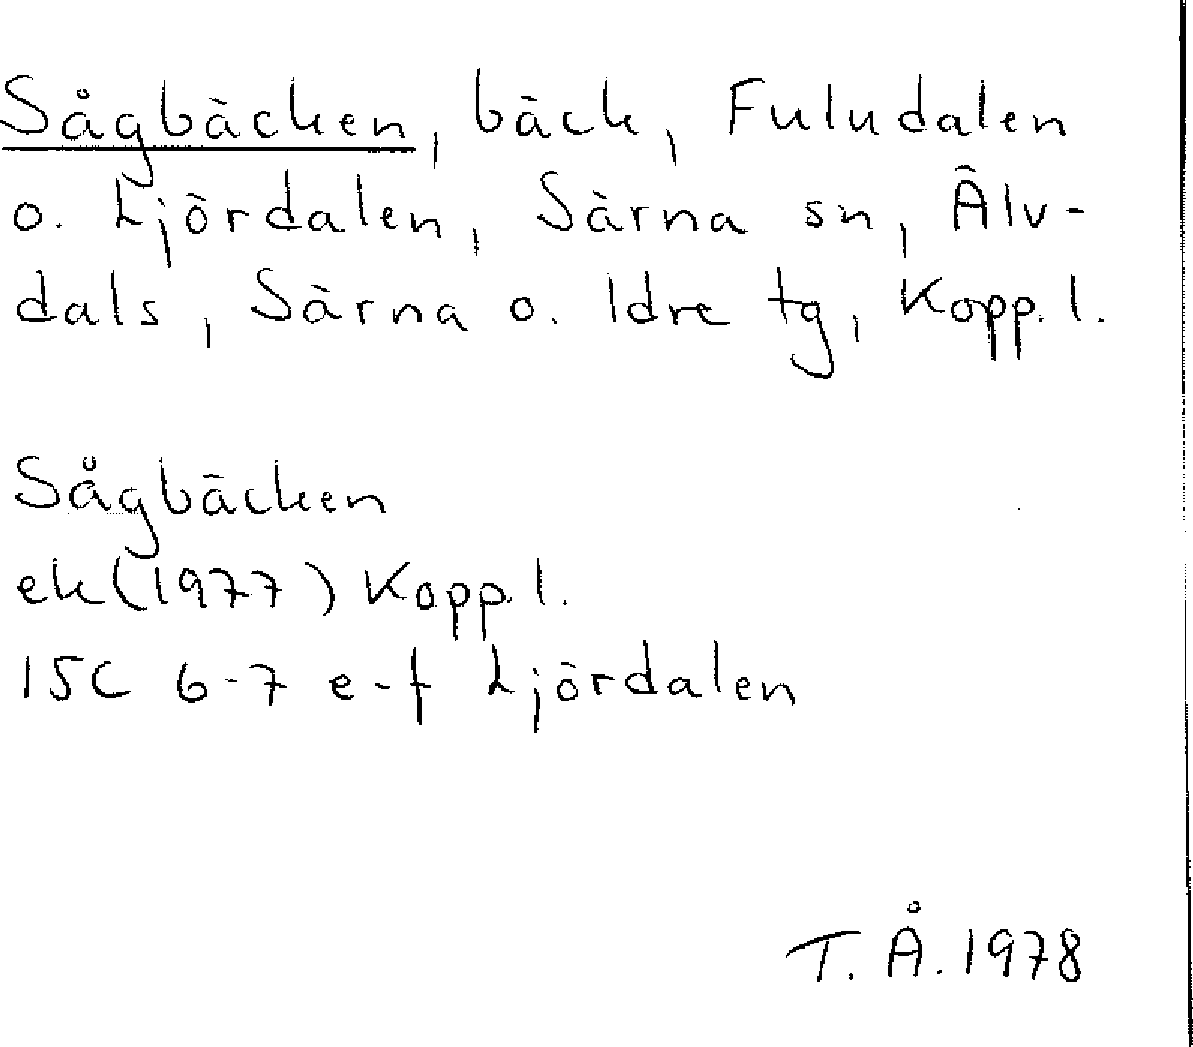 Sågbäcken, bäck, Fuludalen
o. Ljördalen, Särna sn, Älv-
dals, Särna o. Idre tg, Kopp. l.
Sågbäcken
ek (1977) Kopp. l.
15C 6-7 e-f Ljördalen
T. Å. 1978